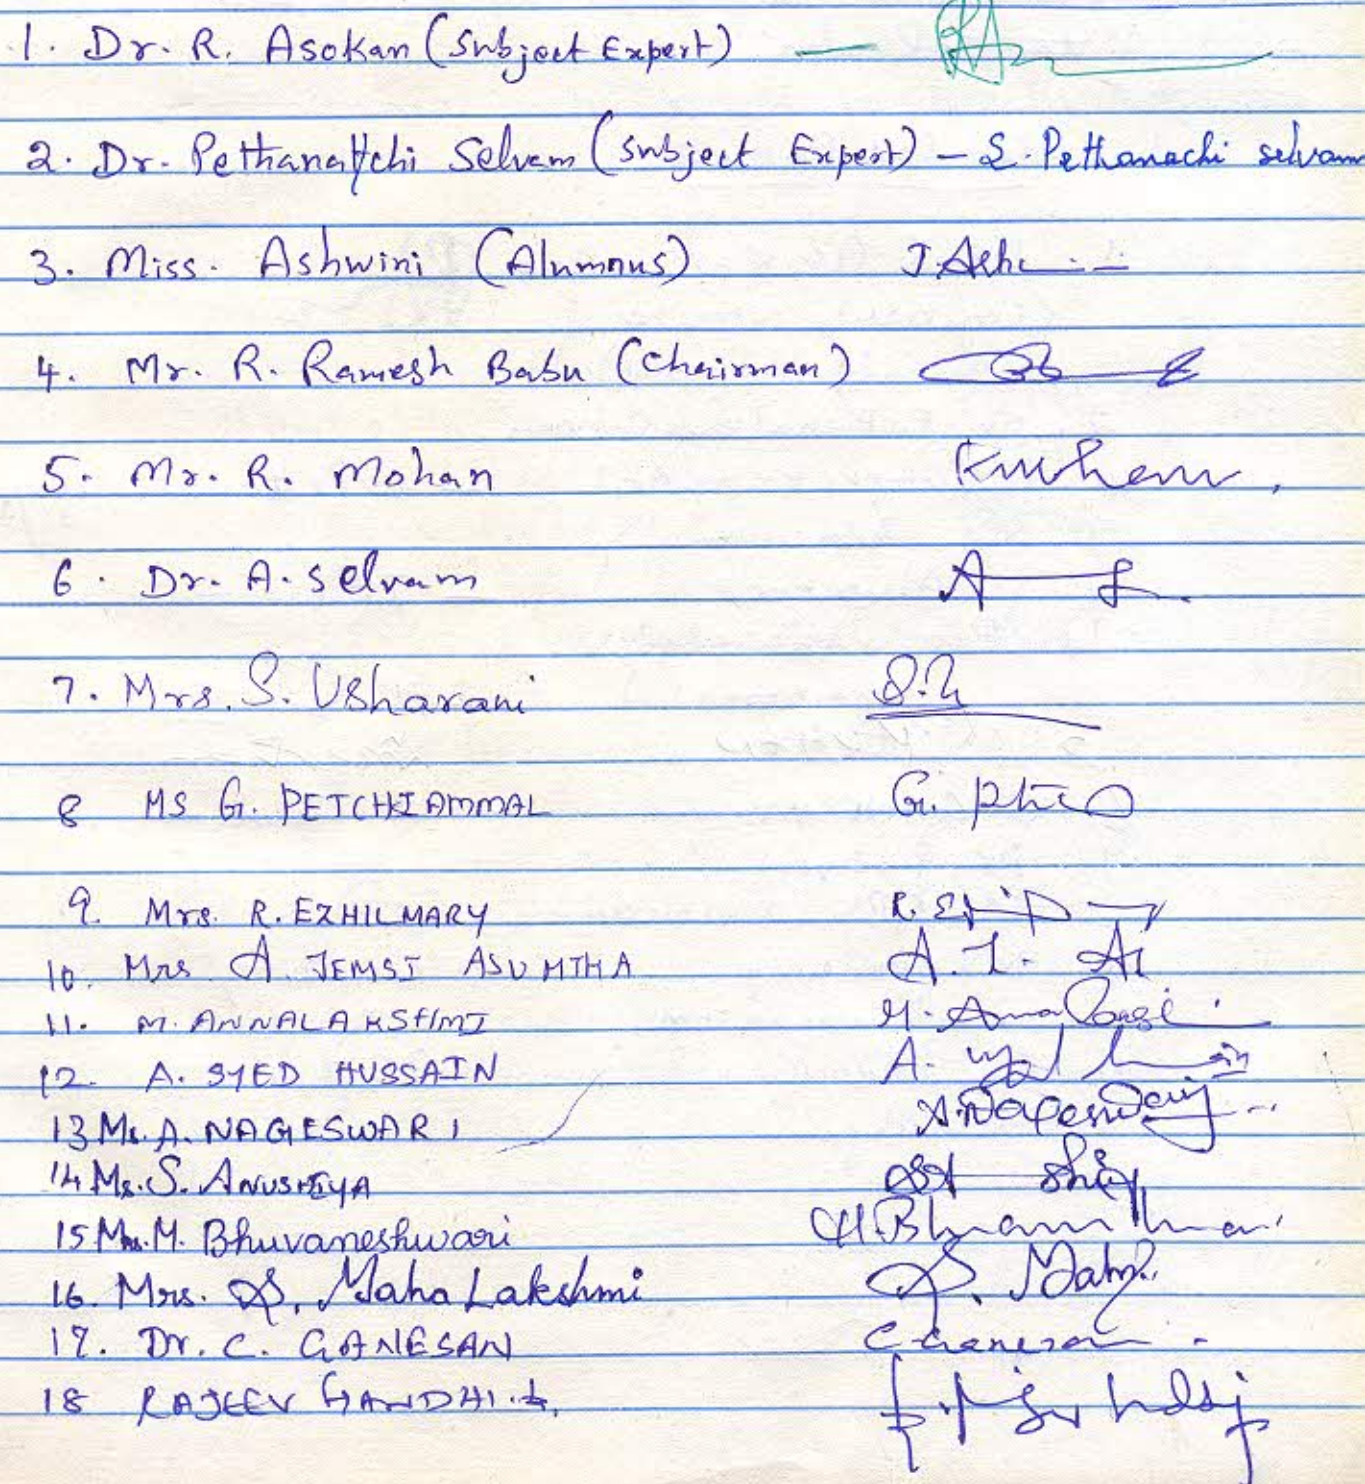 1. Dr. R. Asokan (Subject Expert) —
2. Dr. Pethanatchi Selvam (Subject Expert) - S. Pethanachi selvam
3. Miss. Ashwini (Alumnus) J. Ash
4. Mr. R. Ramesh Babu (Chairman)
5. Mr. R. Mohan
6. Dr. A. Selvam
7. Mrs. S. Usharani
8 MS G. PETCHIAMMAL G.
9. Mrs. R. EZHILMARY R.
10. Mrs A. JEMSI ASUMTHA A.
11. M. ANNALAKSHMI M.
12. A. SYED HUSSAIN A.
13 Ms. A. NAGESWARI A. Nageswari
14 Ms. S. ANUSHIYA
15 Mrs. M. Bhuvaneshwari M.
16. Mrs. S. Maha Lakshmi S.
17. Dr. C. GANESAN C. Ganesan
18 RAJEEV GANDHI.